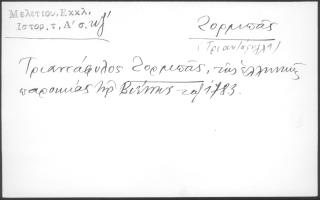 Μελετίου, Εκκλ.
Ιστορ, τ, Α' σ. κζ'
Ζορμπᾶς
(Τριαντάφυλλ)
Τριαντάφυλος Ζορμπᾶς, τῆς ἑλληνικῆς
παροικίας τῆς Βιέννης τῷ 1783.